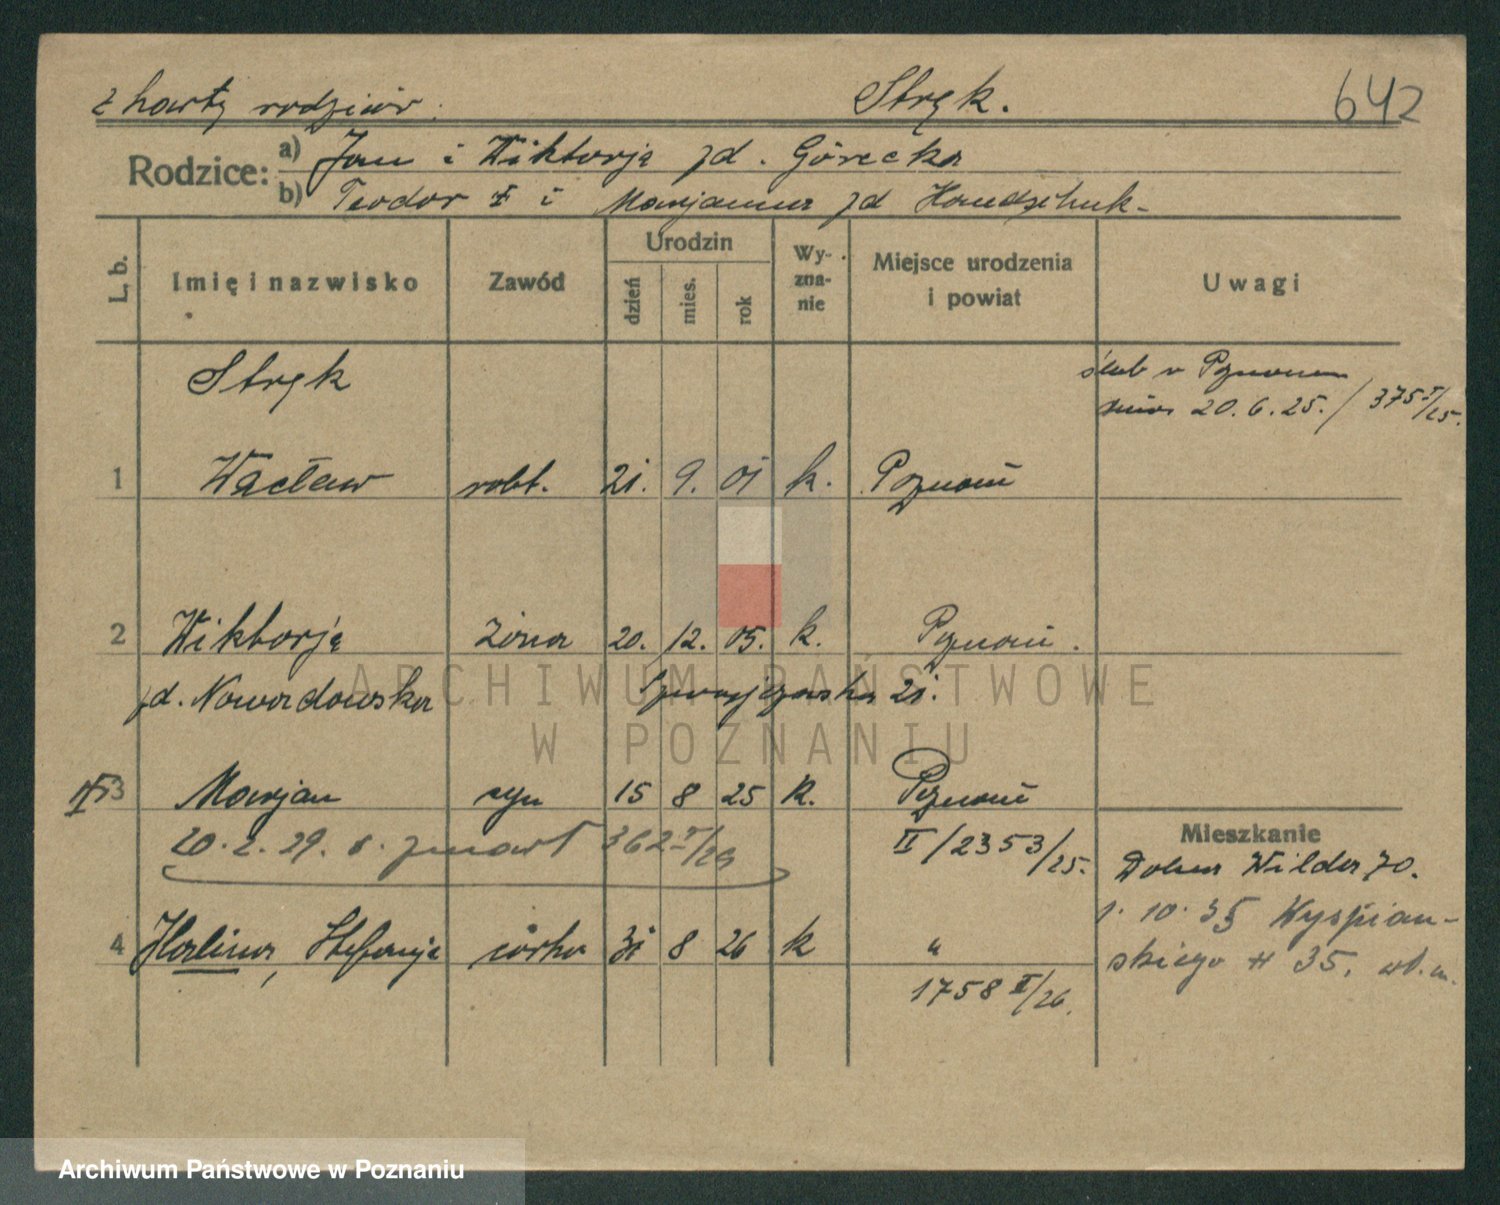 z karty rodziców. Stręk. 642
Rodzice: a) Jan i Wiktorja zd. Górecka
b) Teodor † i Marjanna zd
L. b. Imię i nazwisko Zawód Urodzin Wyznanie Miejsce urodzenia i powiat Uwagi
dzień mies. rok
Stręk ślub w Poznaniu
dnia 20.6.25. / 375 I/25.
1 Wacław robt. 21. 9. 01 k. Poznań
2 Wiktorja żona 20. 12. 05. k. Poznań.
zd. Nowordowska 21.
† 3 Marjan syn 15 8 25 k. Poznań
20.2.29. zmarł 362 I/29 II/2353/25.
Mieszkanie
Dolna Wilda 70.
4 Halina, Stefanja córka 31 8 26 k "
1758 II/26.
1.10.35 Wyspiań-
skiego # 35.
ARCHIWUM PAŃSTWOWE
W POZNANIU
Archiwum Państwowe w Poznaniu